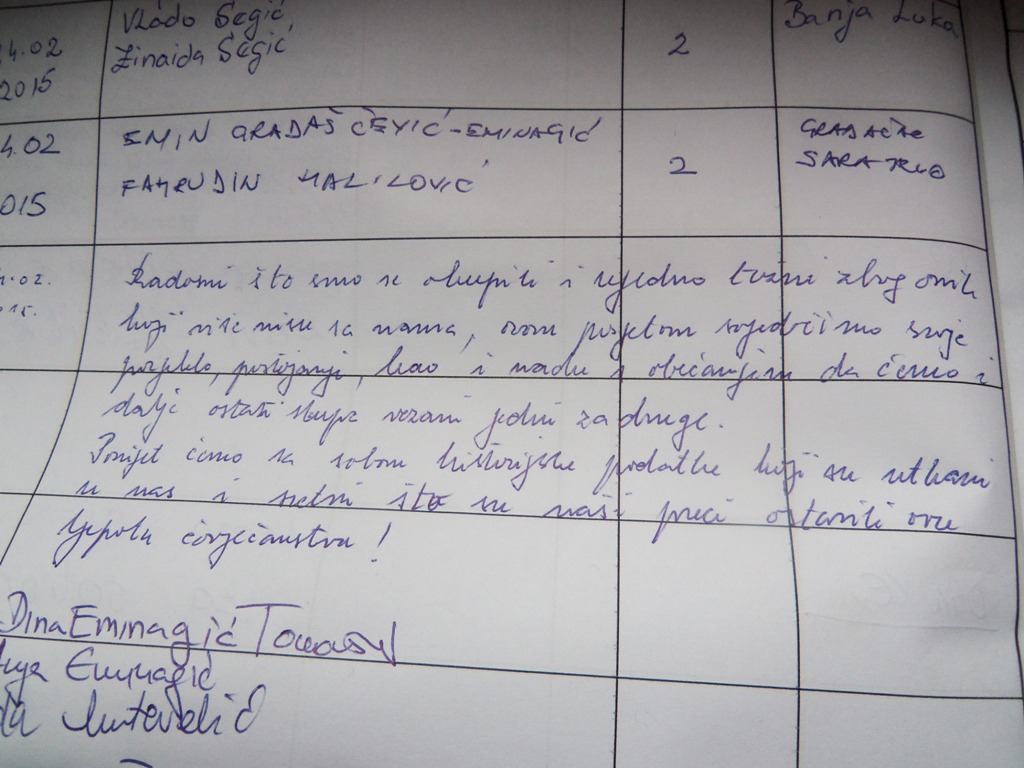 Vlado Šegić, Banja Luka
24.02 Zinaida Šegić 2
2015
4.02 EMIN GRADAŠČEVIĆ-EMINAGIĆ GRADAČAC
2 SARAJEVO
015 FAHRUDIN HALILOVIĆ
4.02. Radosni što smo se okupili i ujedno tužni zbog onih
15. koji više nisu sa nama, ovom posjetom svjedočimo svoje
porjeklo, postojanje, kao i nadu s obećanjem da ćemo i
dalje ostati skupa vezani jedni za druge.
Ponijet ćemo sa sobom historijske podatke koji su utkani
u nas i sretni što su naši preci ostavili ovu
ljepotu čovječanstvu!
Dina Eminagić
Eminagić